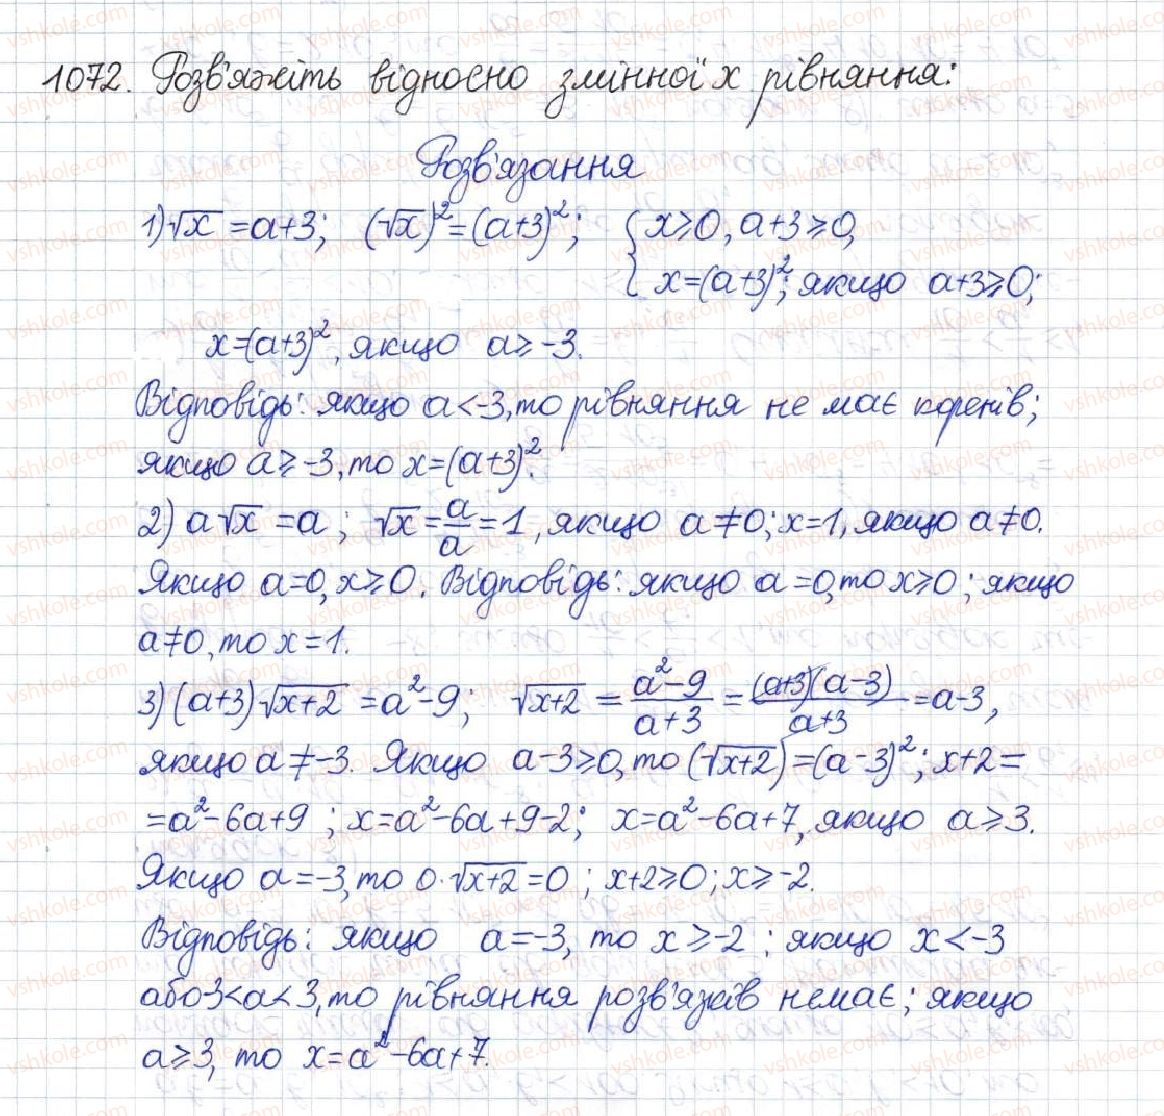 1072. Розв'яжіть відносно змінної x рівняння:
Розв'язання
1) √x = a+3; (√x)² = (a+3)²; { x≥0, a+3≥0,
x=(a+3)²; якщо a+3≥0;
x=(a+3)², якщо a≥-3.
Відповідь: якщо a<-3, то рівняння не має коренів;
якщо a≥-3, то x=(a+3)².
2) a√x = a; √x = a/a = 1, якщо a≠0; x=1, якщо a≠0.
Якщо a=0, x≥0. Відповідь: якщо a=0, то x≥0; якщо
a≠0, то x=1.
3) (a+3)√x+2 = a²-9; √x+2 = a²-9/a+3 = (a+3)(a-3)/a+3 = a-3,
якщо a≠-3. Якщо a-3≥0, то (√x+2)=(a-3)²; x+2=
=a²-6a+9; x=a²-6a+9-2; x=a²-6a+7, якщо a≥3.
Якщо a=-3, то 0·√x+2=0; x+2≥0; x≥-2.
Відповідь: якщо a=-3, то x≥-2; якщо x<-3
або -3<a<3, то рівняння розв'язків немає; якщо
a≥3, то x=a²-6a+7.